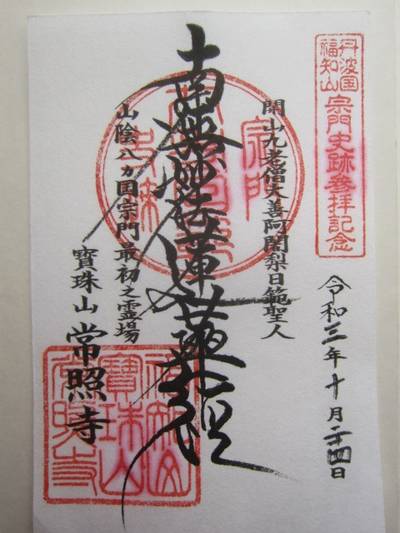 丹波国
福知山
宗門史跡参拝記念
令和三年十月二十四日
開山九老僧大善阿闍梨日範聖人
南無妙法蓮華経
山陰八カ国宗門最初之霊場
寶珠山 常照寺